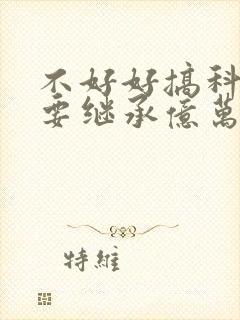 不好好搞科
要继承億萬
特維